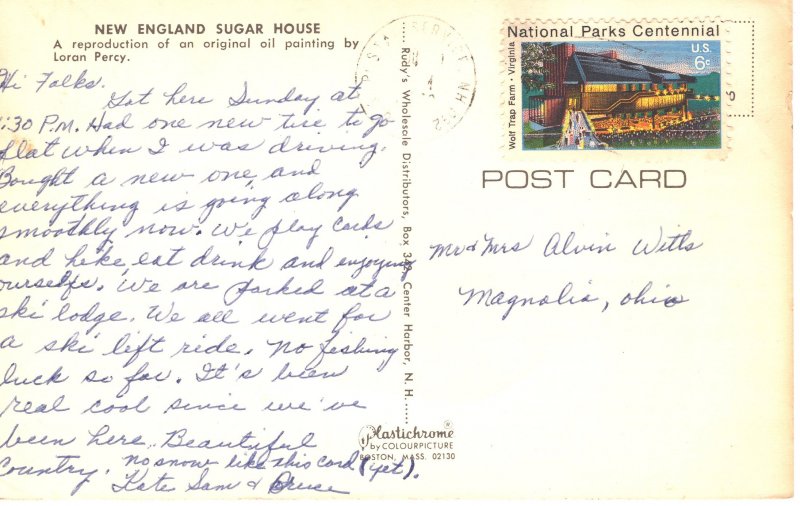 NEW ENGLAND SUGAR HOUSE
A reproduction of an original oil painting by
Loran Percy.
Hi Folks.
Got here Sunday at
:30 P.M. Had one new tire to go
flat when I was driving.
Bought a new one, and
everything is going along
smoothly now. We play cards
and hike, eat drink and enjoying
ourselfs. We are parked at a
ski lodge. We all went for
a ski lift ride. No fishing
luck so far. It's been
real cool since we've
been here. Beautiful
Country. No snow like this card (yet).
Kate Sam & Bruce
Rudy's Wholesale Distributors, Box 342, Center Harbor, N. H.
Plastichrome ®
by COLOURPICTURE
BOSTON, MASS. 02130
National Parks Centennial
U.S.
6c
Wolf Trap Farm • Virginia
POST CARD
Mr & Mrs Alvin Witts
Magnolia, Ohio